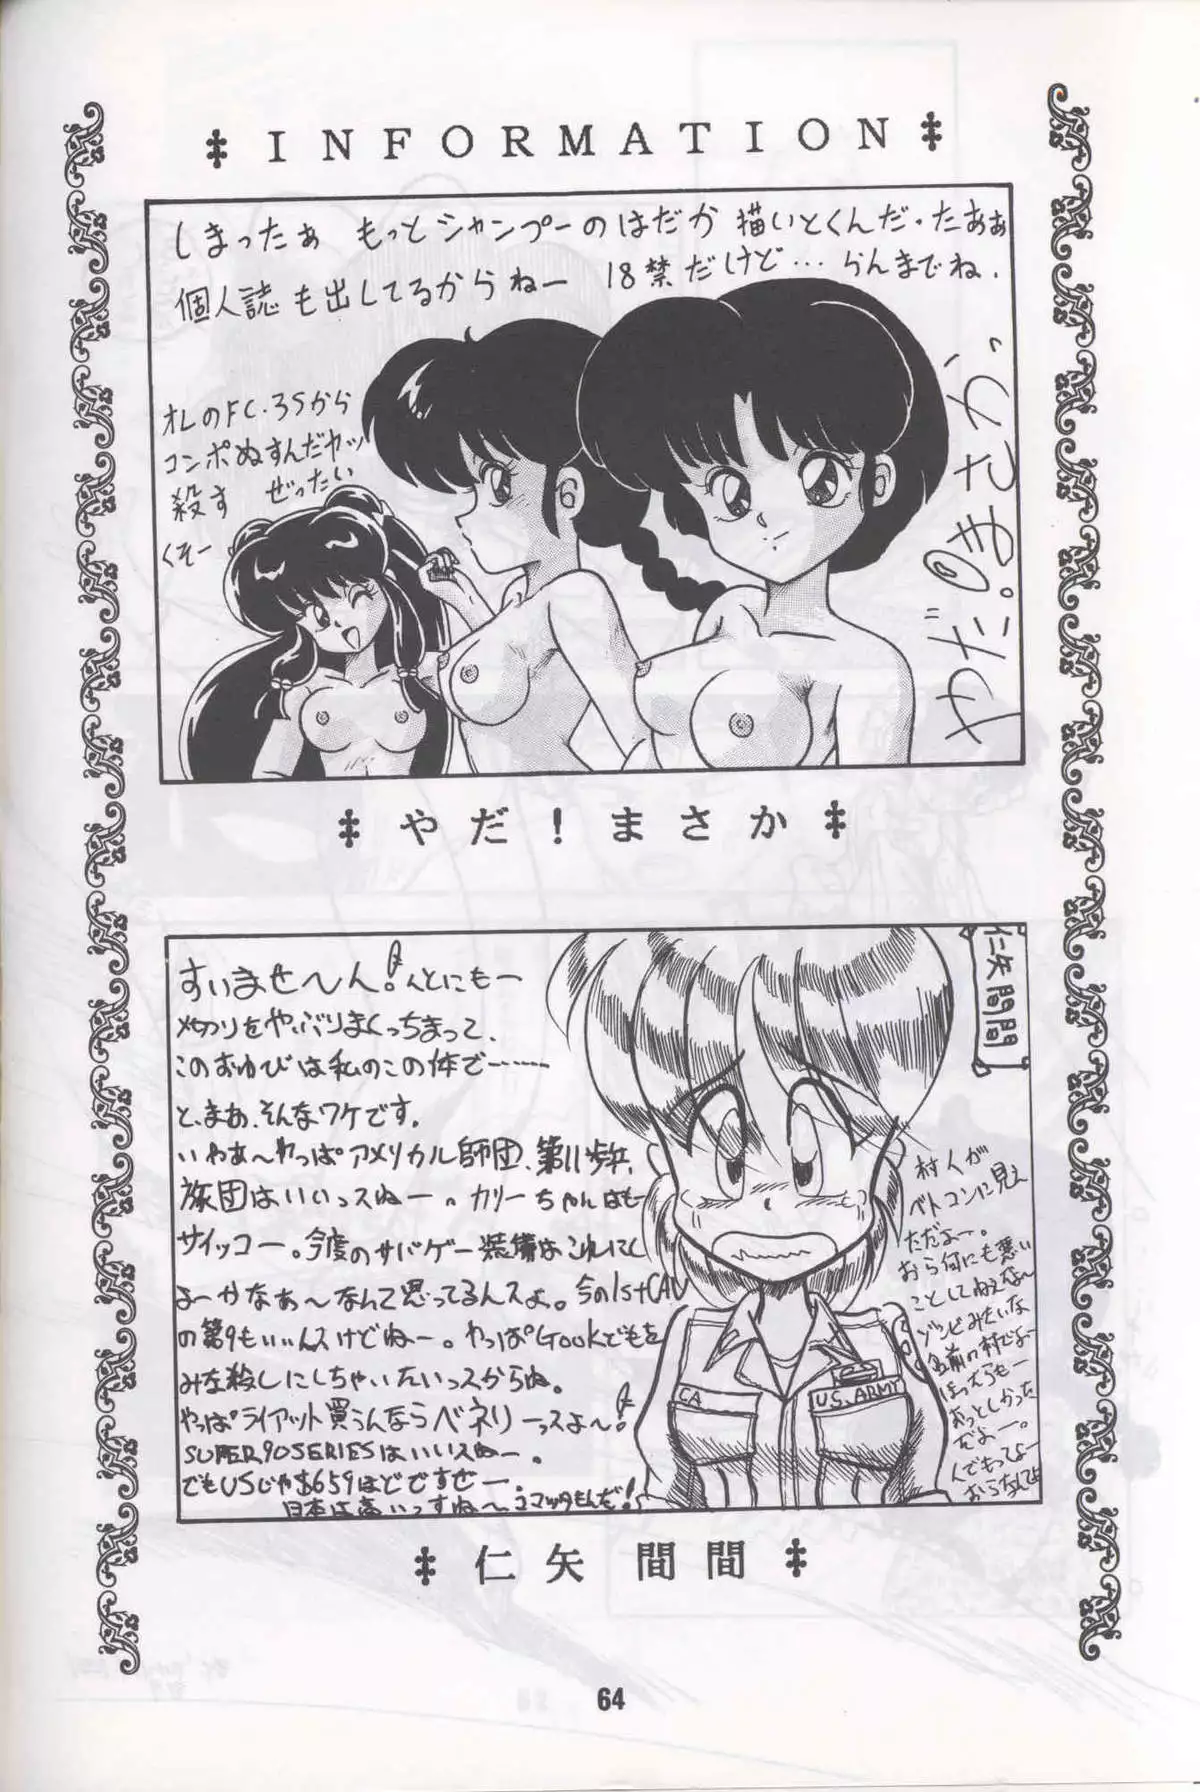 INFORMATION
しまったぁ もっとシャンプーのはだか 描いとくんだ・たぁぁ
個人誌も出してるからねー 18禁だけど… らんまでね.
オレのFC・3Sから
コンポぬすんだヤツ
殺す ぜったい
くそー
やだ!まさか
仁矢間間
すいませ〜ん!んとにもー
〆切りをやぶりまくっちまって、
このおゆびは私のこの体で……
と、まぁ、そんなワケです。
いやぁ〜やっぱアメリカル師団、第11歩兵
旅団はいいっスねー。カリーちゃんはもー
サイッコー。今度のサバゲー装備はこれにし
よーかなぁ〜なんて思ってるんスよ。今の1stCAV
の第9もいいんスけどねー。やっぱGookどもを
みな殺しにしちゃいたいっスからね。
やっぱライアット買うんならベネリーっスよ〜!
SUPER90SERIESはいいスねー。
でもUSじゃ$659ほどですぜー
日本は高いっすねー
村人が
ベトコンに見え
ただよー。
おら何にも悪い
ことしてねえよ〜
ゾンビみたいな
名前の村でよー
ほったらもー
おっとしかった
だよー。
んでもってよー
仁矢 間間
64